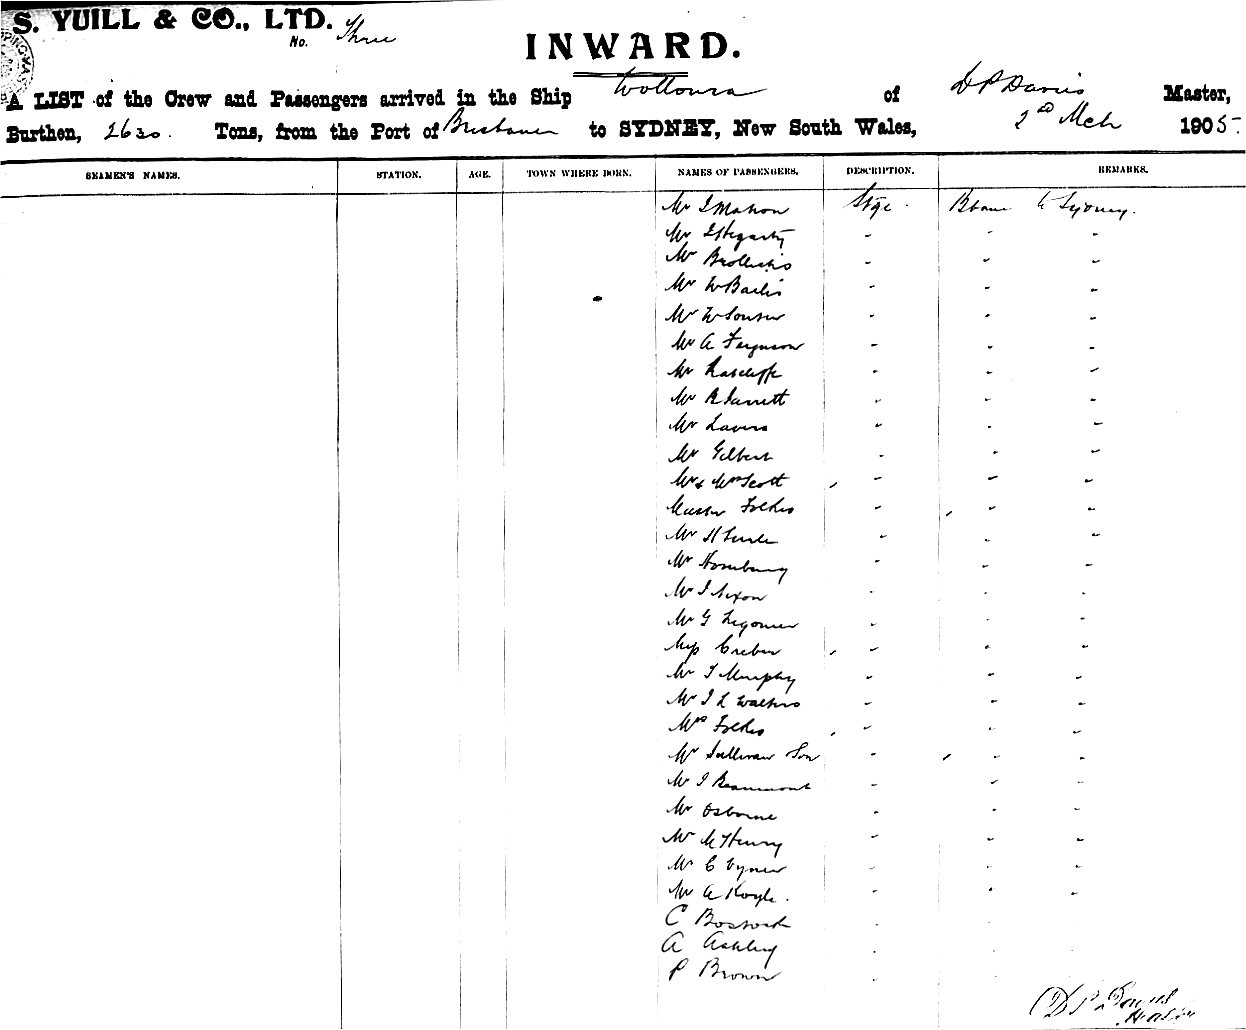 S. YUILL & CO., LTD.
No. Three
INWARD.
A LIST of the Crew and Passengers arrived in the Ship Wollowra of D P Davies Master,
Burthen, 2630. Tons, from the Port of Brisbane to SYDNEY, New South Wales, 2nd Mch 1905.
SEAMEN'S NAMES. STATION. AGE. TOWN WHERE BORN. NAMES OF PASSENGERS. DESCRIPTION. REMARKS.
Mr J Mahon Stge. Bbane to Sydney.
Mr J Hegarty " " "
Mr " " "
Mr W " " "
Mr W " " "
Mr A Ferguson " " "
Mr Ratcliffe " " "
Mr R Jarrett " " "
Mr Lavers " " "
Mr Gilbert " " "
Mr & Mrs Scott " " "
Master Folkes " " "
Mr H " " "
Mr Hornbury " " "
Mr J Nixon " " "
Mr G " " "
Miss Creber " " "
Mr T Murphy " " "
Mr J L Walters " " "
Mrs Folkes " " "
Mr Sullivan Son " " "
Mr J Beaumont " " "
Mr Osborne " " "
Mr McHenry " " "
Mr C Vyner " " "
Mr A " " "
C Bostock "
A Ashley "
P Brown "
D P Davies
Master